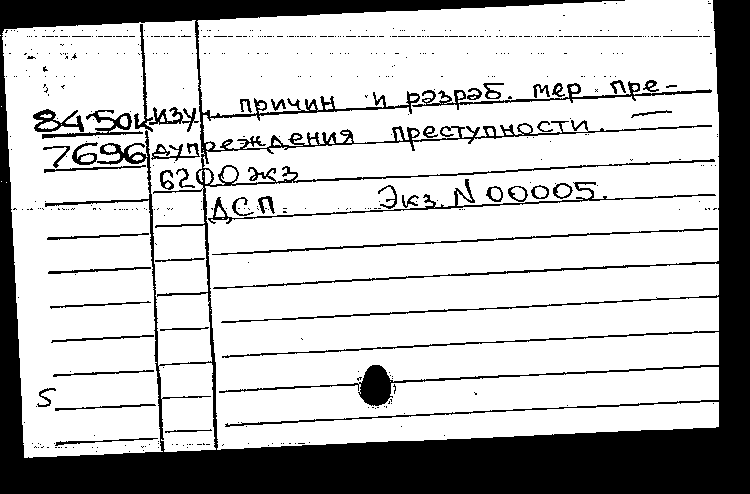 8450к изуч. причин и разраб. мер пре-
7696 дупреждения преступности. —
6200 экз
ДСП. Экз. N 00005.
5